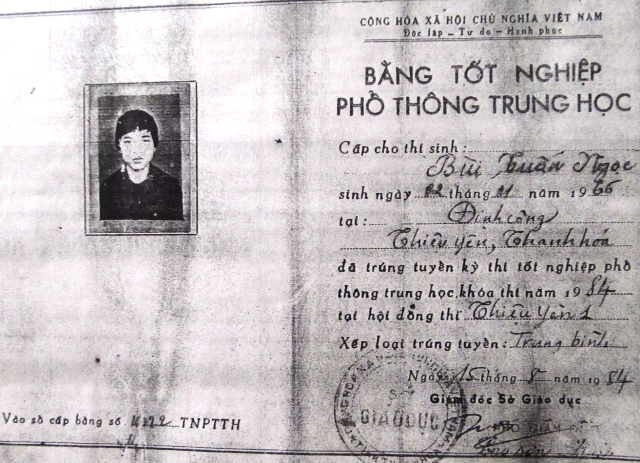 CỘNG HÒA XÃ HỘI CHỦ NGHĨA VIỆT NAM
Độc lập - Tự do - Hạnh phúc
BẰNG TỐT NGHIỆP
PHỔ THÔNG TRUNG HỌC
Cấp cho thí sinh:
Bùi Tuấn Ngọc
sinh ngày 02 tháng 01 năm 1966
tại: Định công
Thiệu yên, Thanh hóa
đã trúng tuyển kỳ thi tốt nghiệp phổ
thông trung học, khóa thi năm 1984
tại hội đồng thi Thiệu yên 1
Xếp loại trúng tuyển: Trung bình
Ngày 15 tháng 8 năm 1984
Giám đốc Sở Giáo dục
PHÓ GIÁM ĐỐC
GIÁO DỤC
Vào sổ cấp bằng số TNPTTH